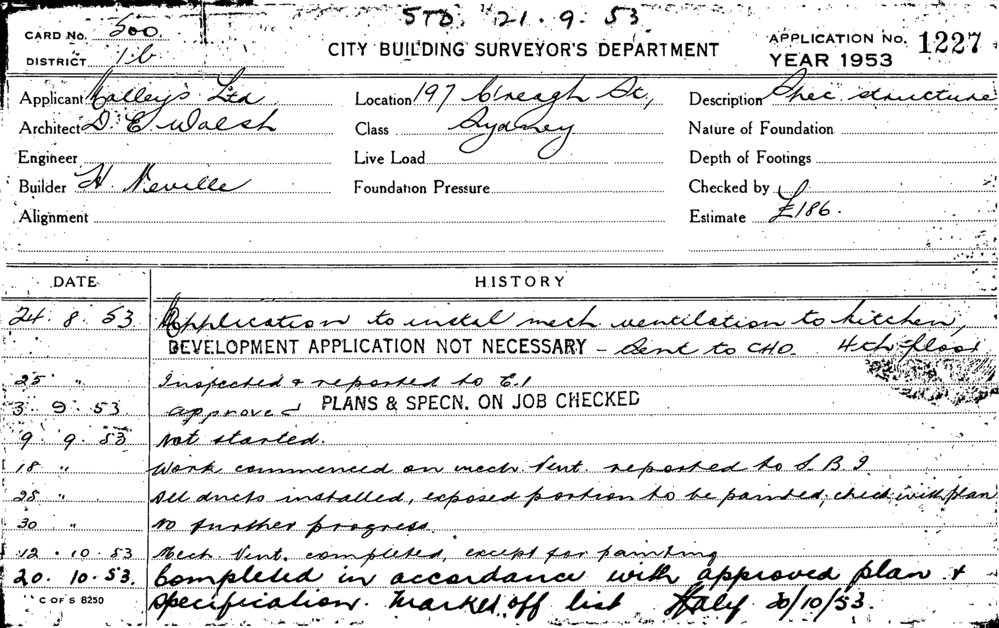 STD. 21. 9. 53
CARD No. 500
DISTRICT 1b
CITY BUILDING SURVEYOR'S DEPARTMENT
APPLICATION No. 1227
YEAR 1953
Applicant Malley's Ltd Location 197 C'reagh St, Description Spec. structure
Architect D. E. Walsh Class Sydney Nature of Foundation
Engineer Live Load Depth of Footings
Builder H. Neville Foundation Pressure Checked by
Alignment Estimate £186.
DATE HISTORY
24. 8. 53 Application to instal mech ventilation to kitchen,
DEVELOPMENT APPLICATION NOT NECESSARY – Sent to CHO. 4th floor
25 " Inspected & reported to E.I
3. 9. 53 approved PLANS & SPECN. ON JOB CHECKED
9. 9. 53 Not started.
18 " Work commenced on mech Vent. reported to S.B.I.
28 " All ducts installed, exposed portion to be painted, check with plan
30 " No further progress.
12. 10. 53 Mech. Vent. completed, except for painting
20. 10. 53. Completed in accordance with approved plan &
C OF S 8250 specification. Marked off list Staly 20/10/53.